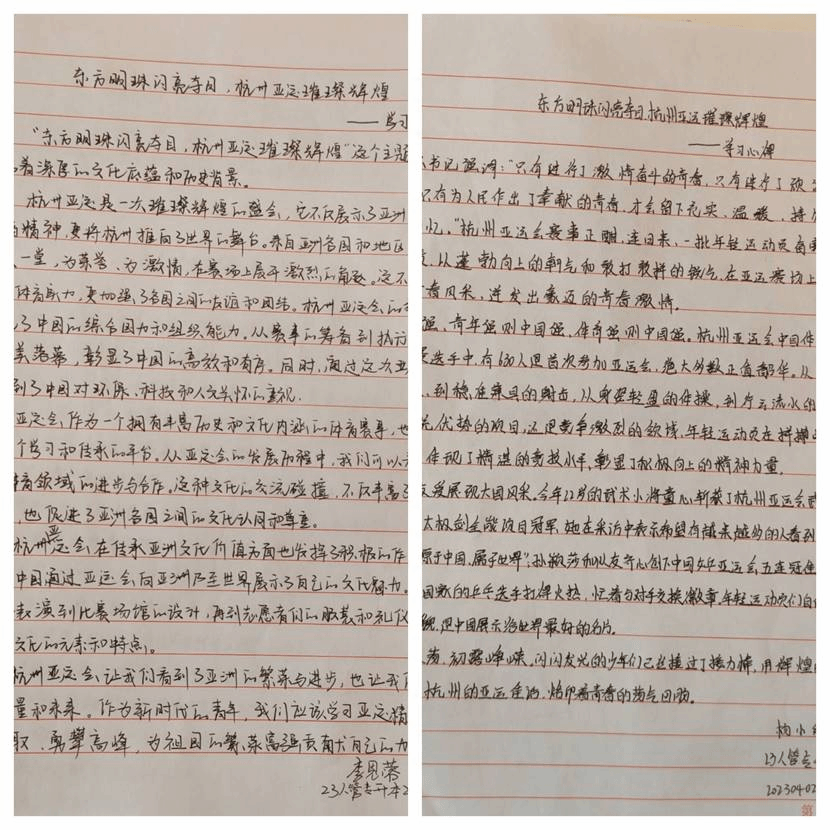 东方明珠闪亮夺目，杭州亚运璀璨辉煌
——学习
“东方明珠闪亮夺目，杭州亚运璀璨辉煌”这个主题
着深厚的文化底蕴和历史背景。
杭州亚运是一次璀璨辉煌的盛会，它不仅展示了亚洲
精神，更将杭州推向了世界的舞台。来自亚洲各国和地区
一堂，为荣誉、为激情，在赛场上展开激烈的角逐。这不
体育魅力，更加强了各国之间的友谊和团结。杭州亚运会的
了中国的综合国力和组织能力。从赛事的筹备到执行
美落幕，彰显了中国的高效和有序。同时，通过这次亚
到了中国对环保、科技和人文关怀的重视。
亚运会，作为一个拥有丰富历史和文化内涵的体育赛事，也
个学习和传承的平台。从亚运会的发展历程中，我们可以
体育领域的进步与合作。这种文化的交流碰撞，不仅丰富了
，也促进了亚洲各国之间的文化认同和尊重。
杭州亚运会，在传承亚洲文化价值方面也发挥了积极的作
中国通过亚运会向亚洲乃至世界展示了自己的文化魅力。
表演到比赛场馆的设计，再到志愿者们的服装和礼仪
文化的元素和特点。
杭州亚运会，让我们看到了亚洲的繁荣与进步，也让我们
量和未来。作为新时代的青年，我们应该学习亚运精
取、勇攀高峰，为祖国的繁荣富强贡献自己的力
李思蓉
23人管专升本2
东方明珠闪亮夺目，杭州亚运璀璨辉煌
——学习心得
书记强调：“只有进行了激情奋斗的青春，只有进行了顽
只有为人民作出了奉献的青春，才会留下充实、温暖、持
忆。”杭州亚运会赛事正酣，连日来，一批年轻运动员奋勇
，从蓬勃向上的朝气和敢打敢拼的锐气，在亚运赛场上
青春风采，迸发出豪迈的青春激情。
强，青年强则中国强，体育强则中国强。杭州亚运会中国体
选手中，有630人是首次参加亚运会，绝大多数正值韶华。从
，到稳、准兼具的射击，从身姿轻盈的体操，到行云流水的
统优势的项目，还是竞争激烈的领域，年轻运动员在拼搏
体现了精湛的竞技水平，彰显了积极向上的精神力量。
发展现大国风采。今年12岁的武术小将童心，斩获了杭州亚运会武
太极剑全能项目冠军，她在采访中表示希望有越来越多的人看到
源于中国，属于世界”；孙颖莎和队友齐心创下中国女乒亚运会五连冠佳
国家的乒乓选手打得火热，忙着与对手交换徽章，年轻运动员们自信
貌，是中国展示给世界最好的名片。
，初露峥嵘，闪闪发光的少年们已经接过了接力棒，用辉煌的
杭州的亚运征途，烙印着青春的动人回响。
杨小
23人管专
20230402
第